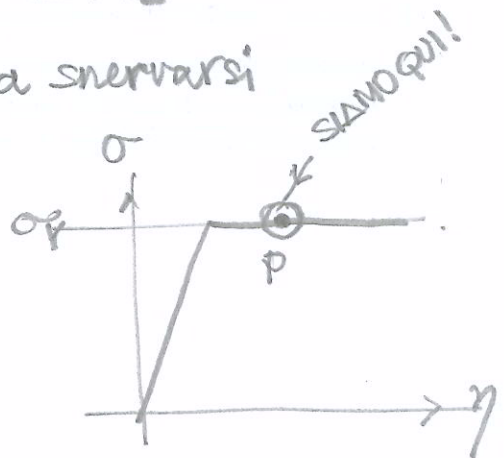 a snervarsi
SIAMO QUI!
σ
σ
P
η